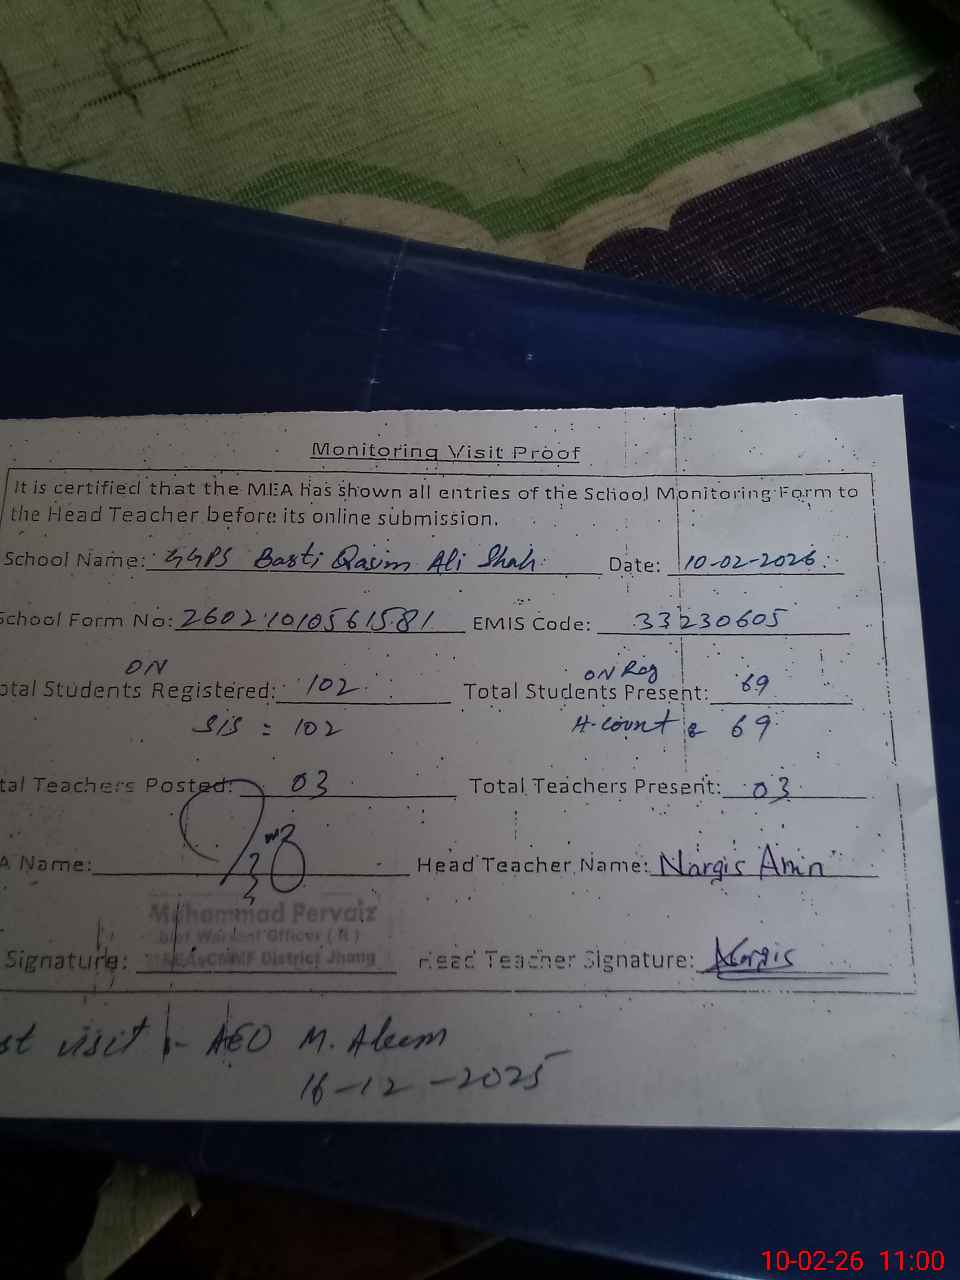 Monitoring Visit Proof
It is certified that the MEA has shown all entries of the School Monitoring Form to
the Head Teacher before its online submission.
School Name: GGPS Basti Qasim Ali Shah Date: 10-02-2026
School Form No: 26021010561581 EMIS Code: 33230605
ON ON Reg
otal Students Registered: 102 Total Students Present: 69
SIS = 102 H-count 69
tal Teachers Posted: 03 Total Teachers Present: 03
A Name: Head Teacher Name: Nargis Amin
Muhammad Pervaiz
Warrant Officer (R)
Signature: District Jhang Head Teacher Signature: Nargis
st visit :- AEO M. Aleem
16-12-2025
10-02-26 11:00